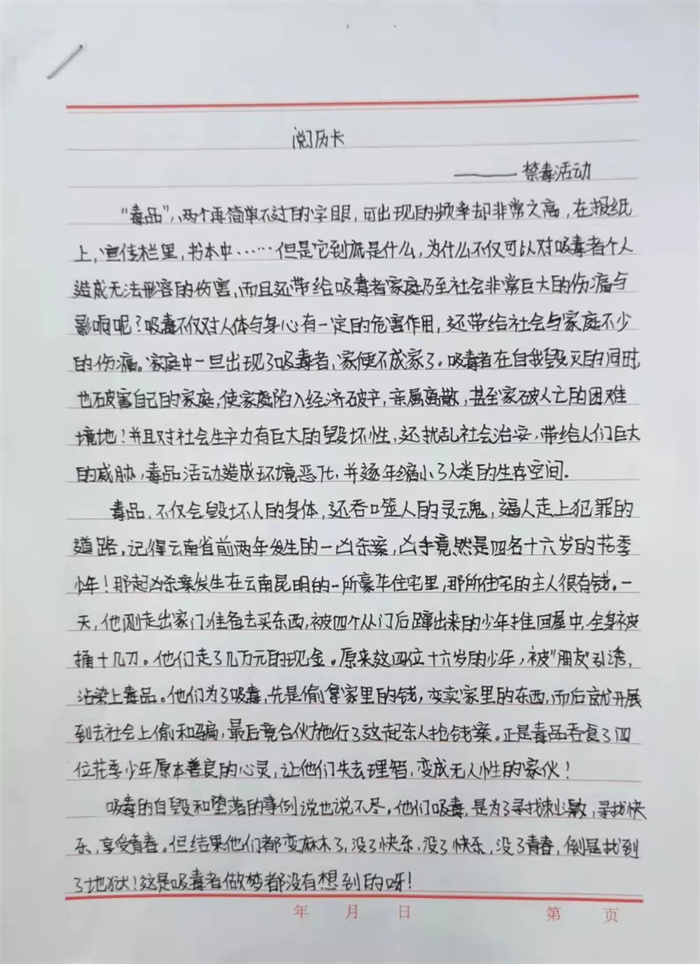 阅历卡
——禁毒活动
“毒品”，两个再简单不过的字眼，可出现的频率却非常之高，在报纸
上，宣传栏里，书本中……但是它到底是什么，为什么不仅可以对吸毒者个人
造成无法形容的伤害，而且还带给吸毒者家庭乃至社会非常巨大的伤痛与
影响呢？吸毒不仅对人体与身心有一定的危害作用，还带给社会与家庭不少
的伤痛。家庭中一旦出现了吸毒者，家便不成家了。吸毒者在自我毁灭的同时，
也破害自己的家庭，使家庭陷入经济破产，亲属离散，甚至家破人亡的困难
境地！并且对社会生产力有巨大的毁坏性，还扰乱社会治安，带给人们巨大
的威胁，毒品活动造成环境恶化，并逐年缩小了人类的生存空间。
毒品，不仅会毁坏人的身体，还吞噬人的灵魂，逼人走上犯罪的
道路，记得云南省前两年发生的一凶杀案，凶手竟然是四名十六岁的花季
少年！那起凶杀案发生在云南昆明的一所豪华住宅里，那所住宅的主人很有钱。一
天，他刚走出家门准备去买东西，被四个从门后蹿出来的少年推回屋中，全身被
捅十几刀。他们走了几万元的现金。原来这四位十六岁的少年，被“朋友”引诱，
沾染上毒品。他们为了吸毒，先是偷拿家里的钱，变卖家里的东西，而后就开展
到去社会上偷和骗，最后竟合伙施行了这起杀人抢钱案。正是毒品吞食了四
位花季少年原本善良的心灵，让他们失去理智，变成无人性的家伙！
吸毒的自毁和堕落的事例说也说不尽。他们吸毒，是为了寻找刺激，寻找快
乐，享受青春。但结果他们都变麻木了，没了快乐，没了快乐，没了青春，倒是找到
了地狱！这是吸毒者做梦都没有想到的呀！
年 月 日 第 页